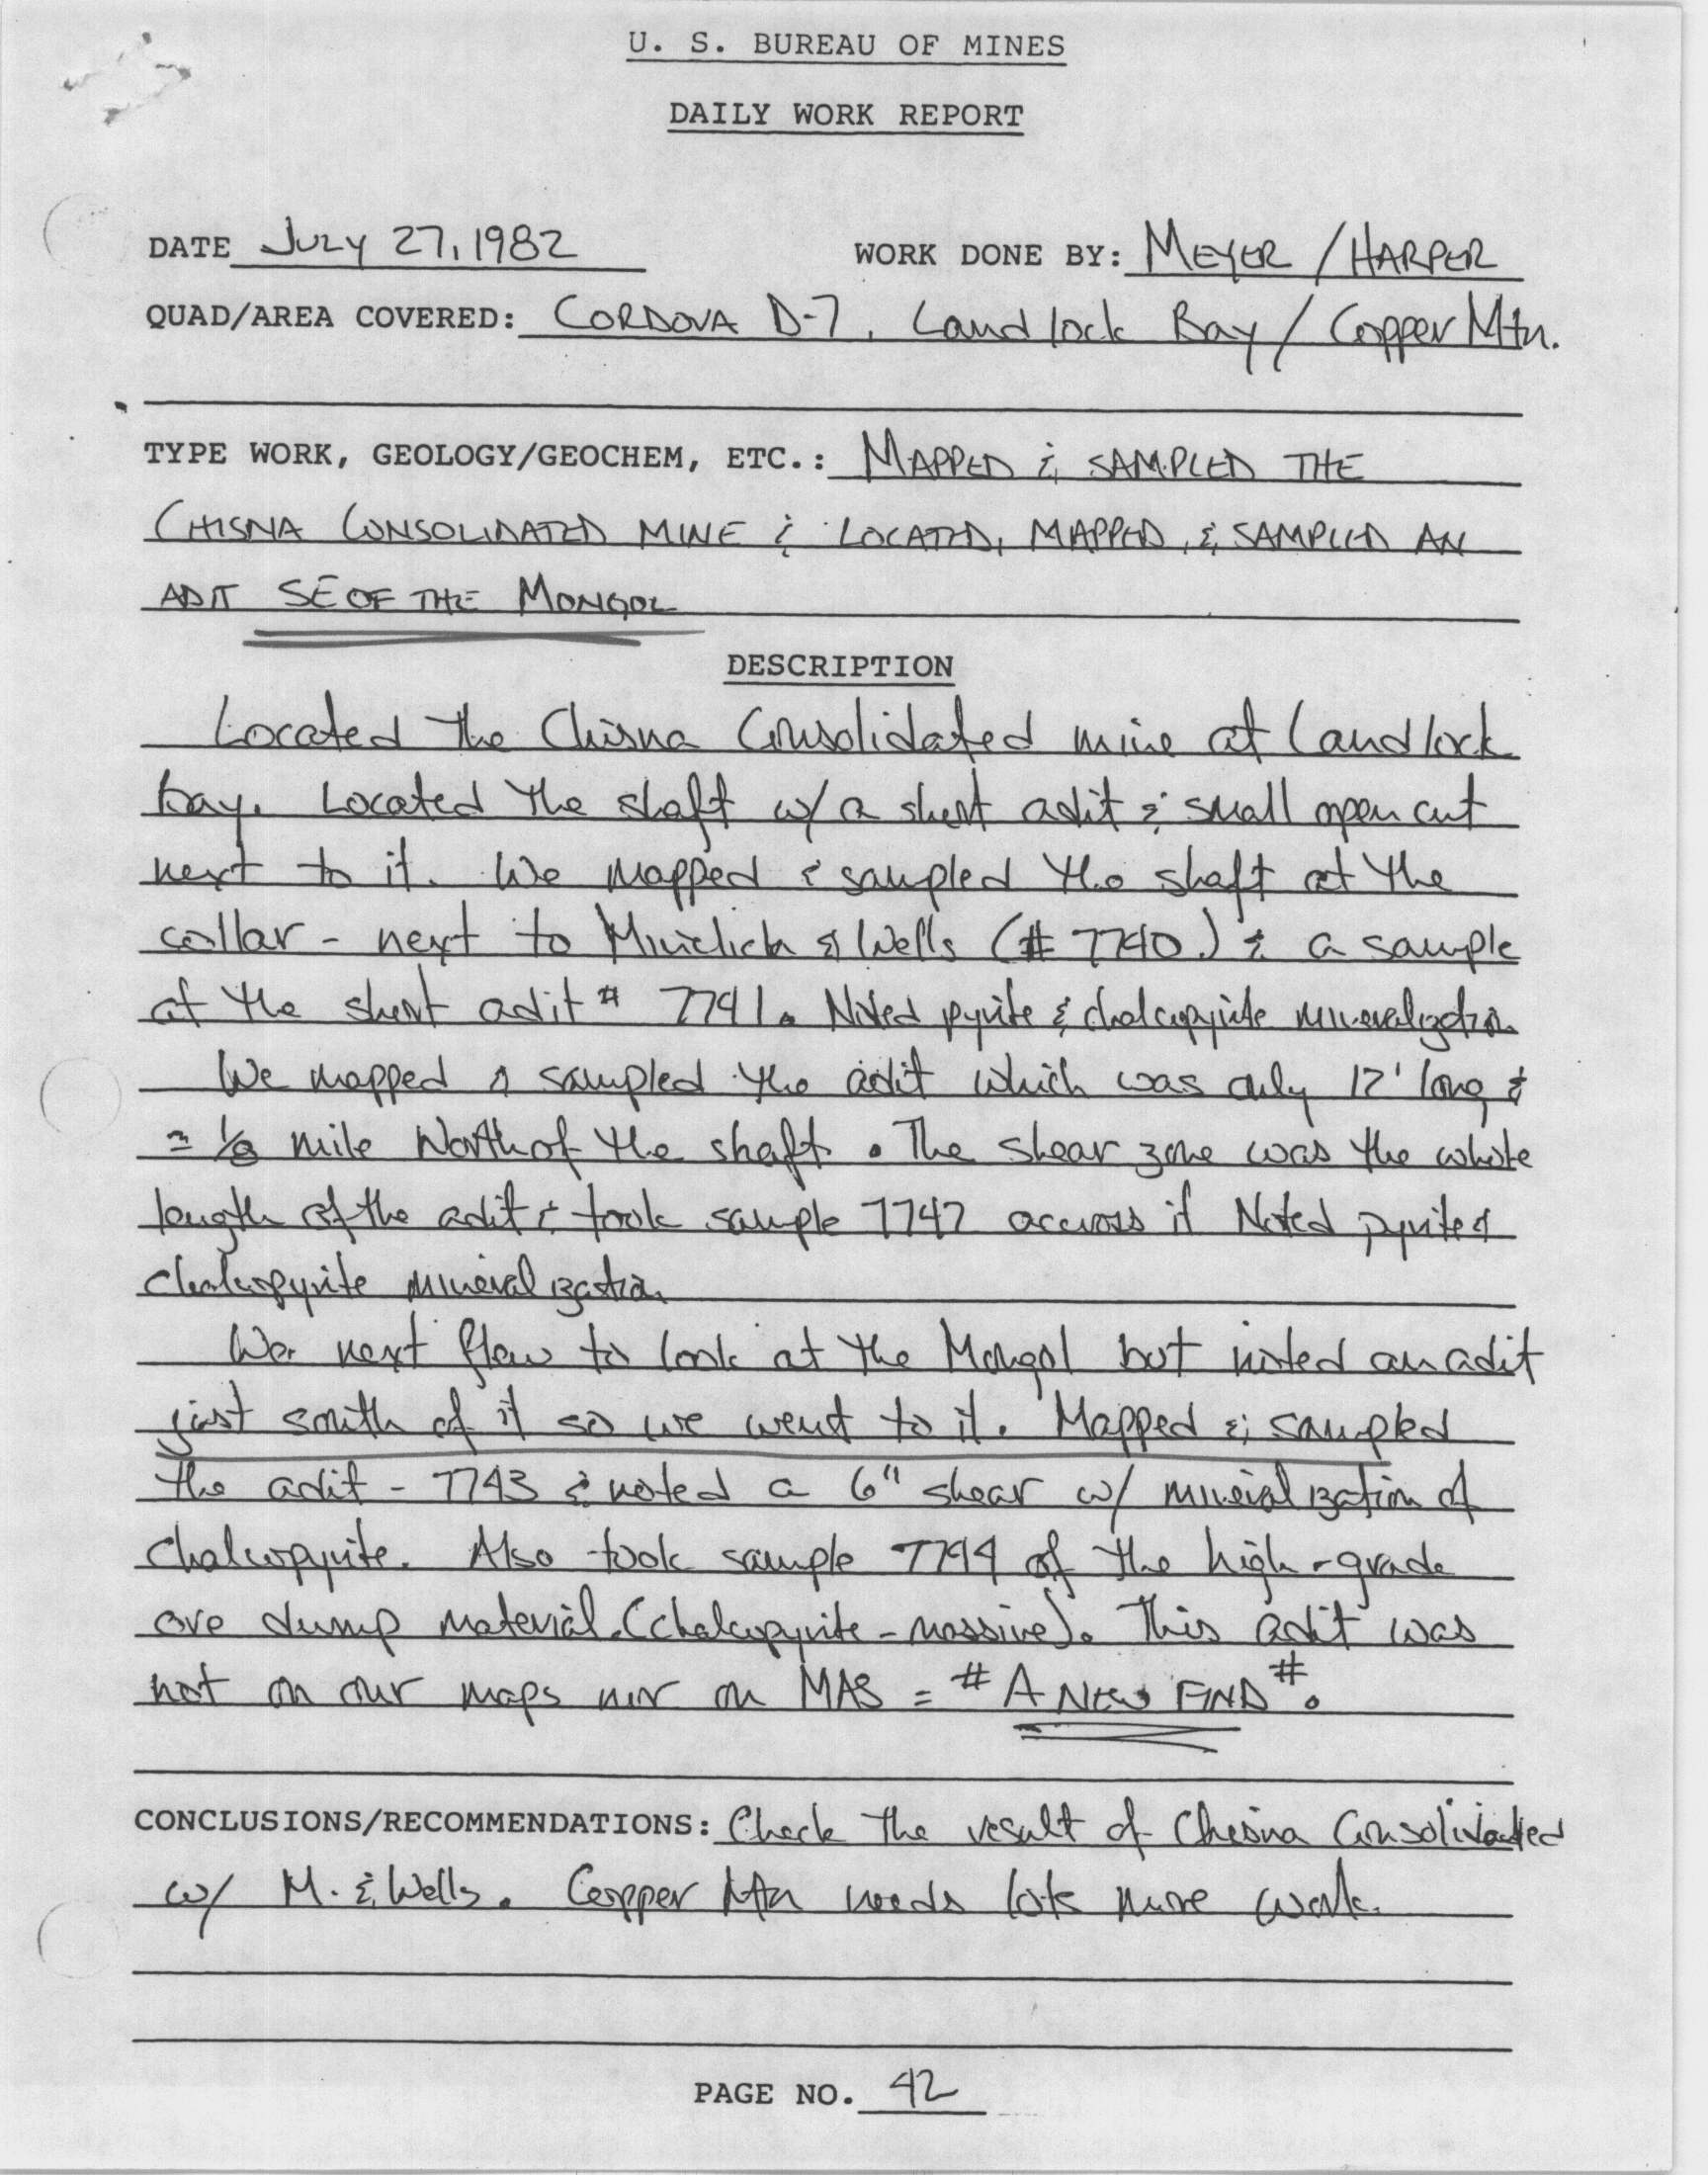 U. S. BUREAU OF MINES
DAILY WORK REPORT
DATE July 27, 1982 WORK DONE BY: MEYER / HARPER
QUAD/AREA COVERED: CORDOVA D-7, Landlock Bay / Copper Mtn.
TYPE WORK, GEOLOGY/GEOCHEM, ETC.: MAPPED & SAMPLED THE
CHISNA CONSOLIDATED MINE & LOCATED, MAPPED, & SAMPLED AN
ADIT SE OF THE MONGOL
DESCRIPTION
Located the Chisna Consolidated mine at Landlock
bay. Located the shaft w/ a short adit & small open cut
next to it. We mapped & sampled the shaft at the
collar - next to & Wells (# 7740.) & a sample
at the short adit # 7741. Noted pyrite & chalcopyrite mineralization
We mapped & sampled the adit which was only 17' long &
≈ 1/8 mile North of the shaft. The shear zone was the whole
length of the adit & took sample 7742 accross it Noted pyrite &
chalcopyrite mineralization
We next flew to look at the Mongol but noted an adit
just south of it so we went to it. Mapped & sampled
the adit - 7743 & noted a 6" shear w/ mineralization of
chalcopyrite. Also took sample 7744 of the high-grade
ore dump material. (chalcopyrite - massive). This adit was
not on our maps nor on MAS = # A NEW FIND #.
CONCLUSIONS/RECOMMENDATIONS: Check the result of Chisna Consolidated
w/ M. & Wells. Copper Mtn needs lots more work.
PAGE NO. 42